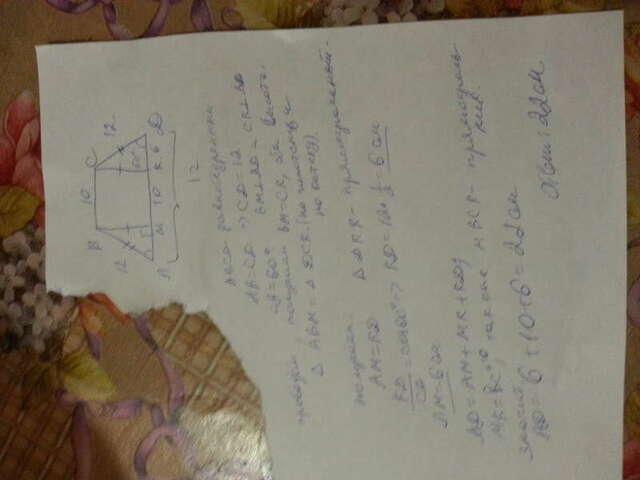 B 10 C
12 12
60°
A M 10 K 6 D
12
ABCD равнобедренная
AB=CD => CD=12
∠D=60° BM⊥AD CK⊥AD
проведём BM=CK, высоты,
△ABM=△DCK (по гипотенузе и
по катету)
получим △DKC - прямоугольный
AM=KD
KD/CD=cos60° => KD=12·1/2=6см
AM=6см
AD=AM+MK+KD
MK=BC=10, так как MBCK - прямоуголь
ник
значит
AD=6+10+6=22см
Ответ: 22см